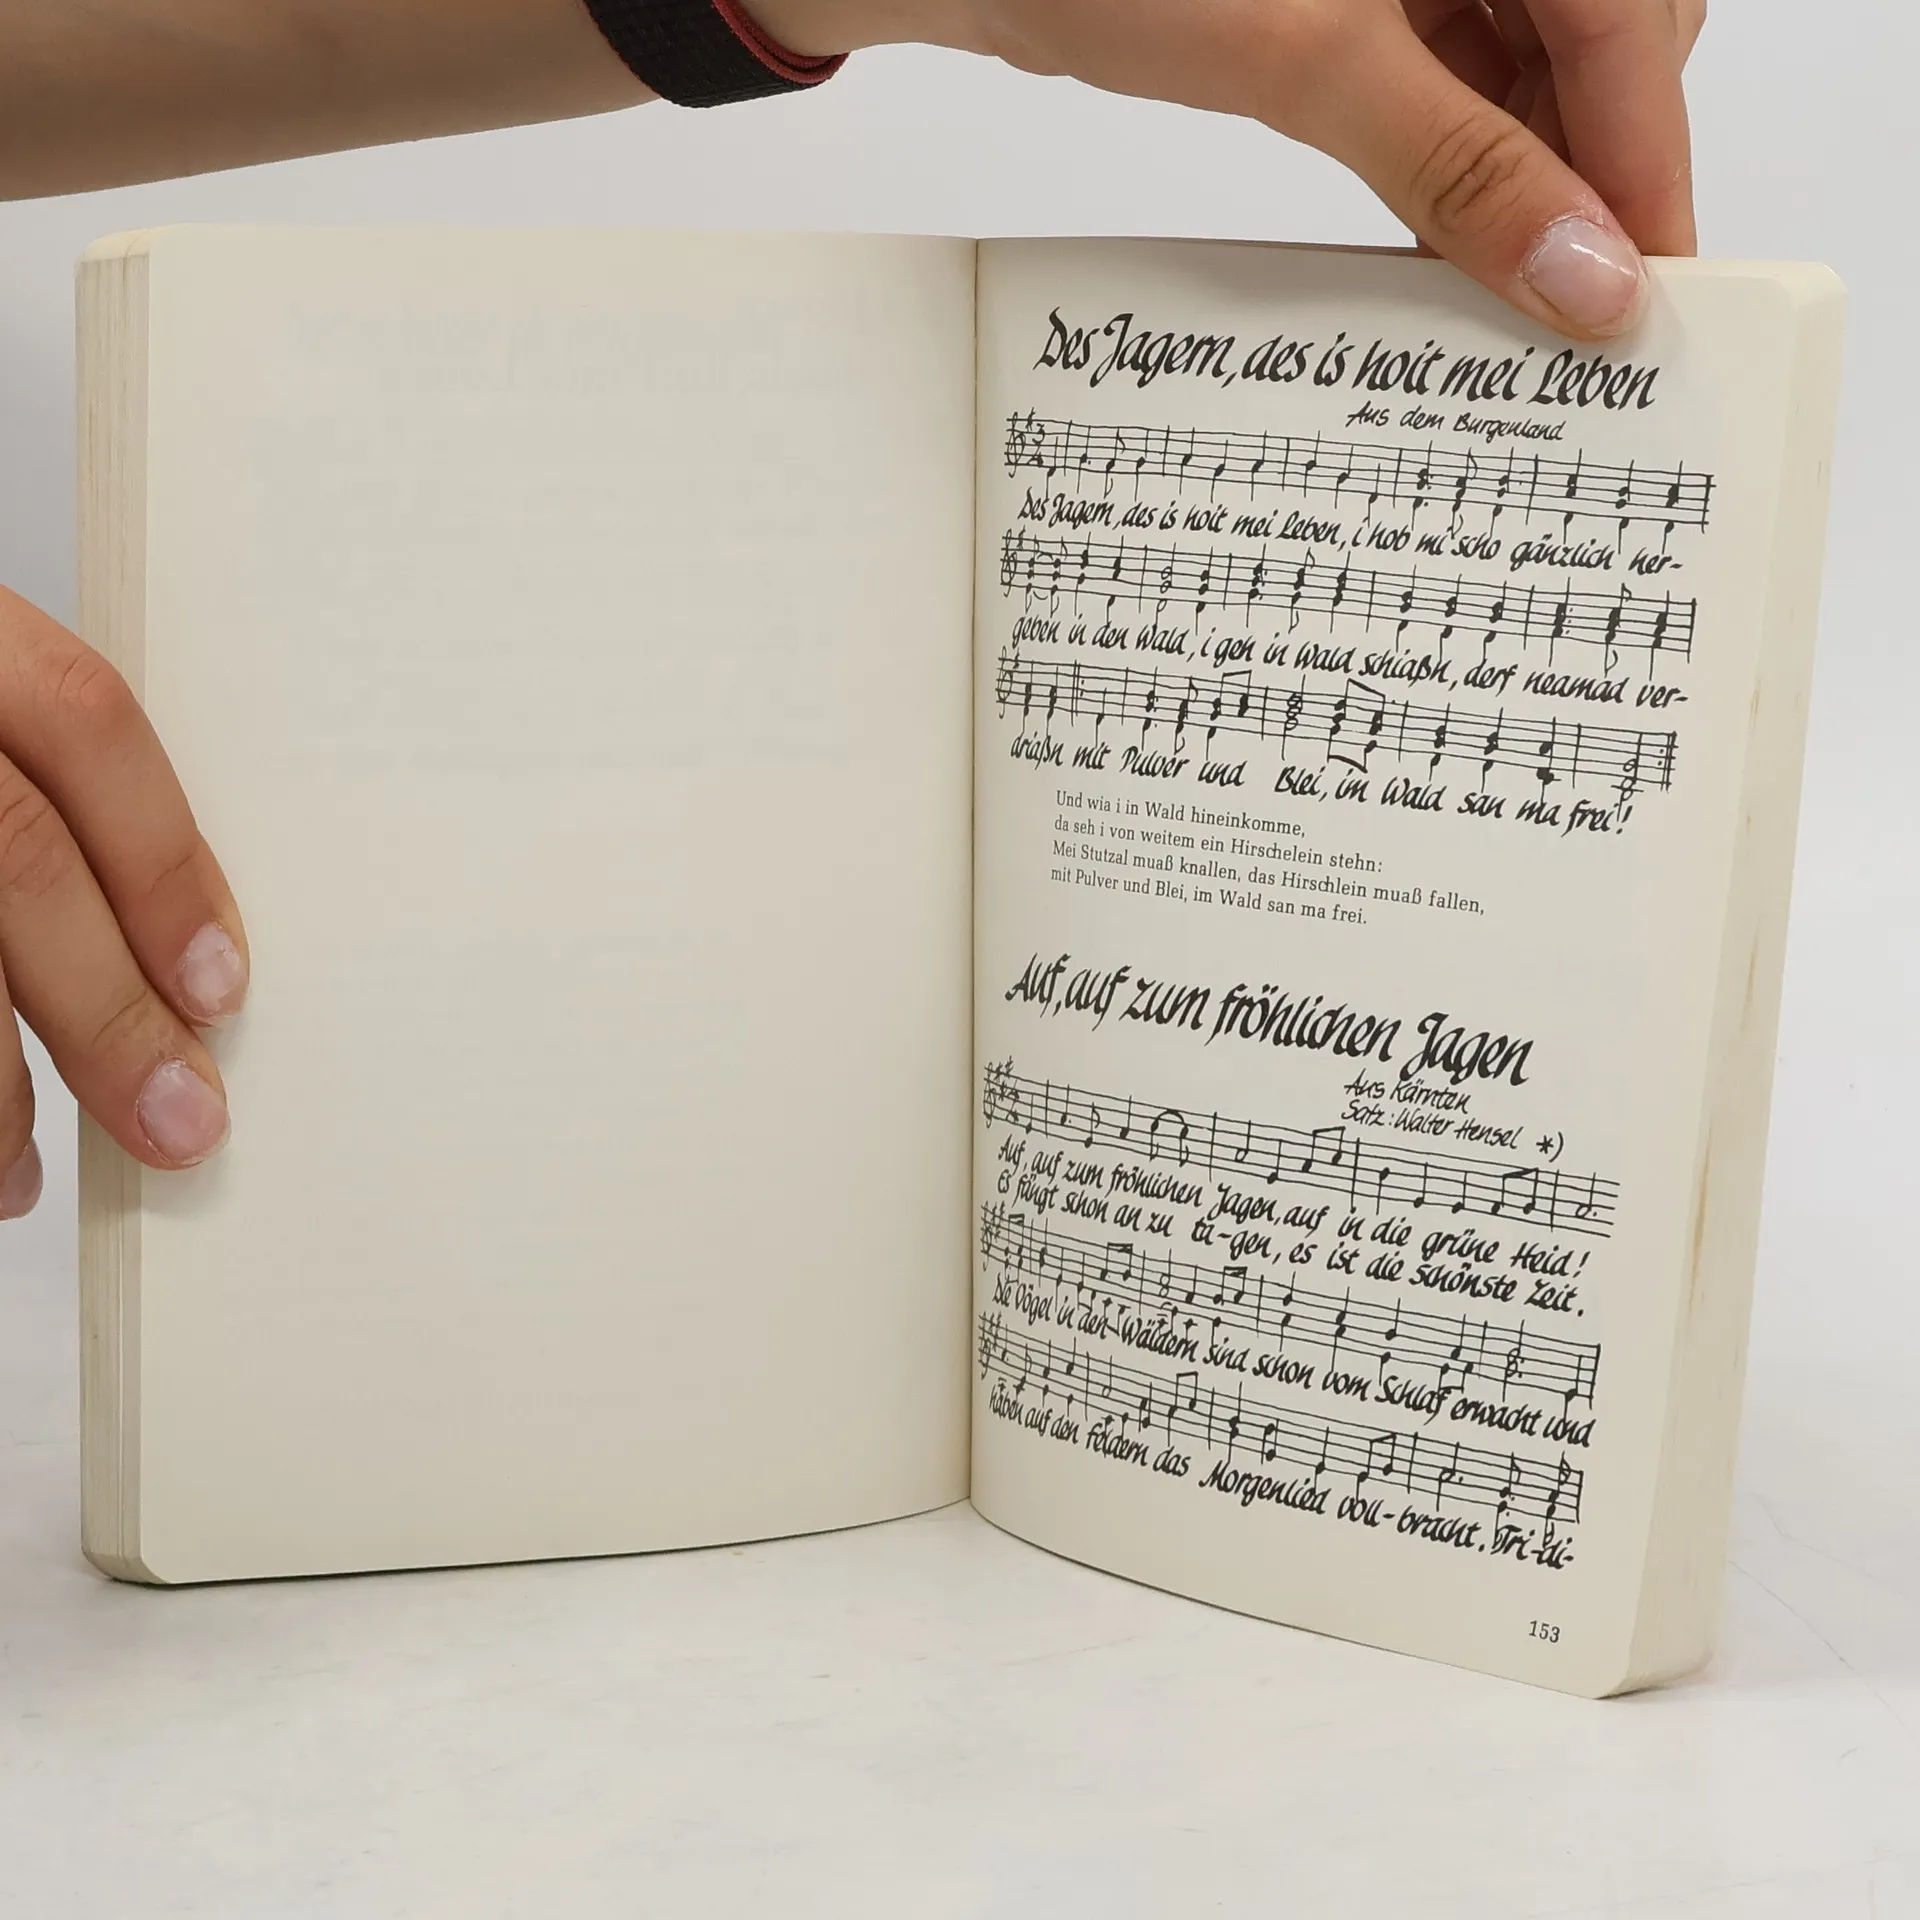 Des Jagern, des is hoit mei Leben
Aus dem Burgenland
Des Jagern, des is hoit mei Leben, i hob mi scho gänzlich her-
geben in den Wald, i geh in Wald schiaßn, derf neamad ver-
driaßn mit Pulver und Blei, im Wald san ma frei!
Und wia i in Wald hineinkomme,
da seh i von weitem ein Hirschelein stehn:
Mei Stutzal muaß knallen, das Hirschlein muaß fallen,
mit Pulver und Blei, im Wald san ma frei.
Auf, auf zum fröhlichen Jagen
Aus Kärnten
Satz: Walter Hensel *)
Auf, auf zum fröhlichen Jagen, auf in die grüne Heid!
Es fängt schon an zu ta-gen, es ist die schönste Zeit.
Die Vögel in den Wäldern sind schon vom Schlaf erwacht und
haben auf den Feldern das Morgenlied voll-bracht. Tri-di-
153